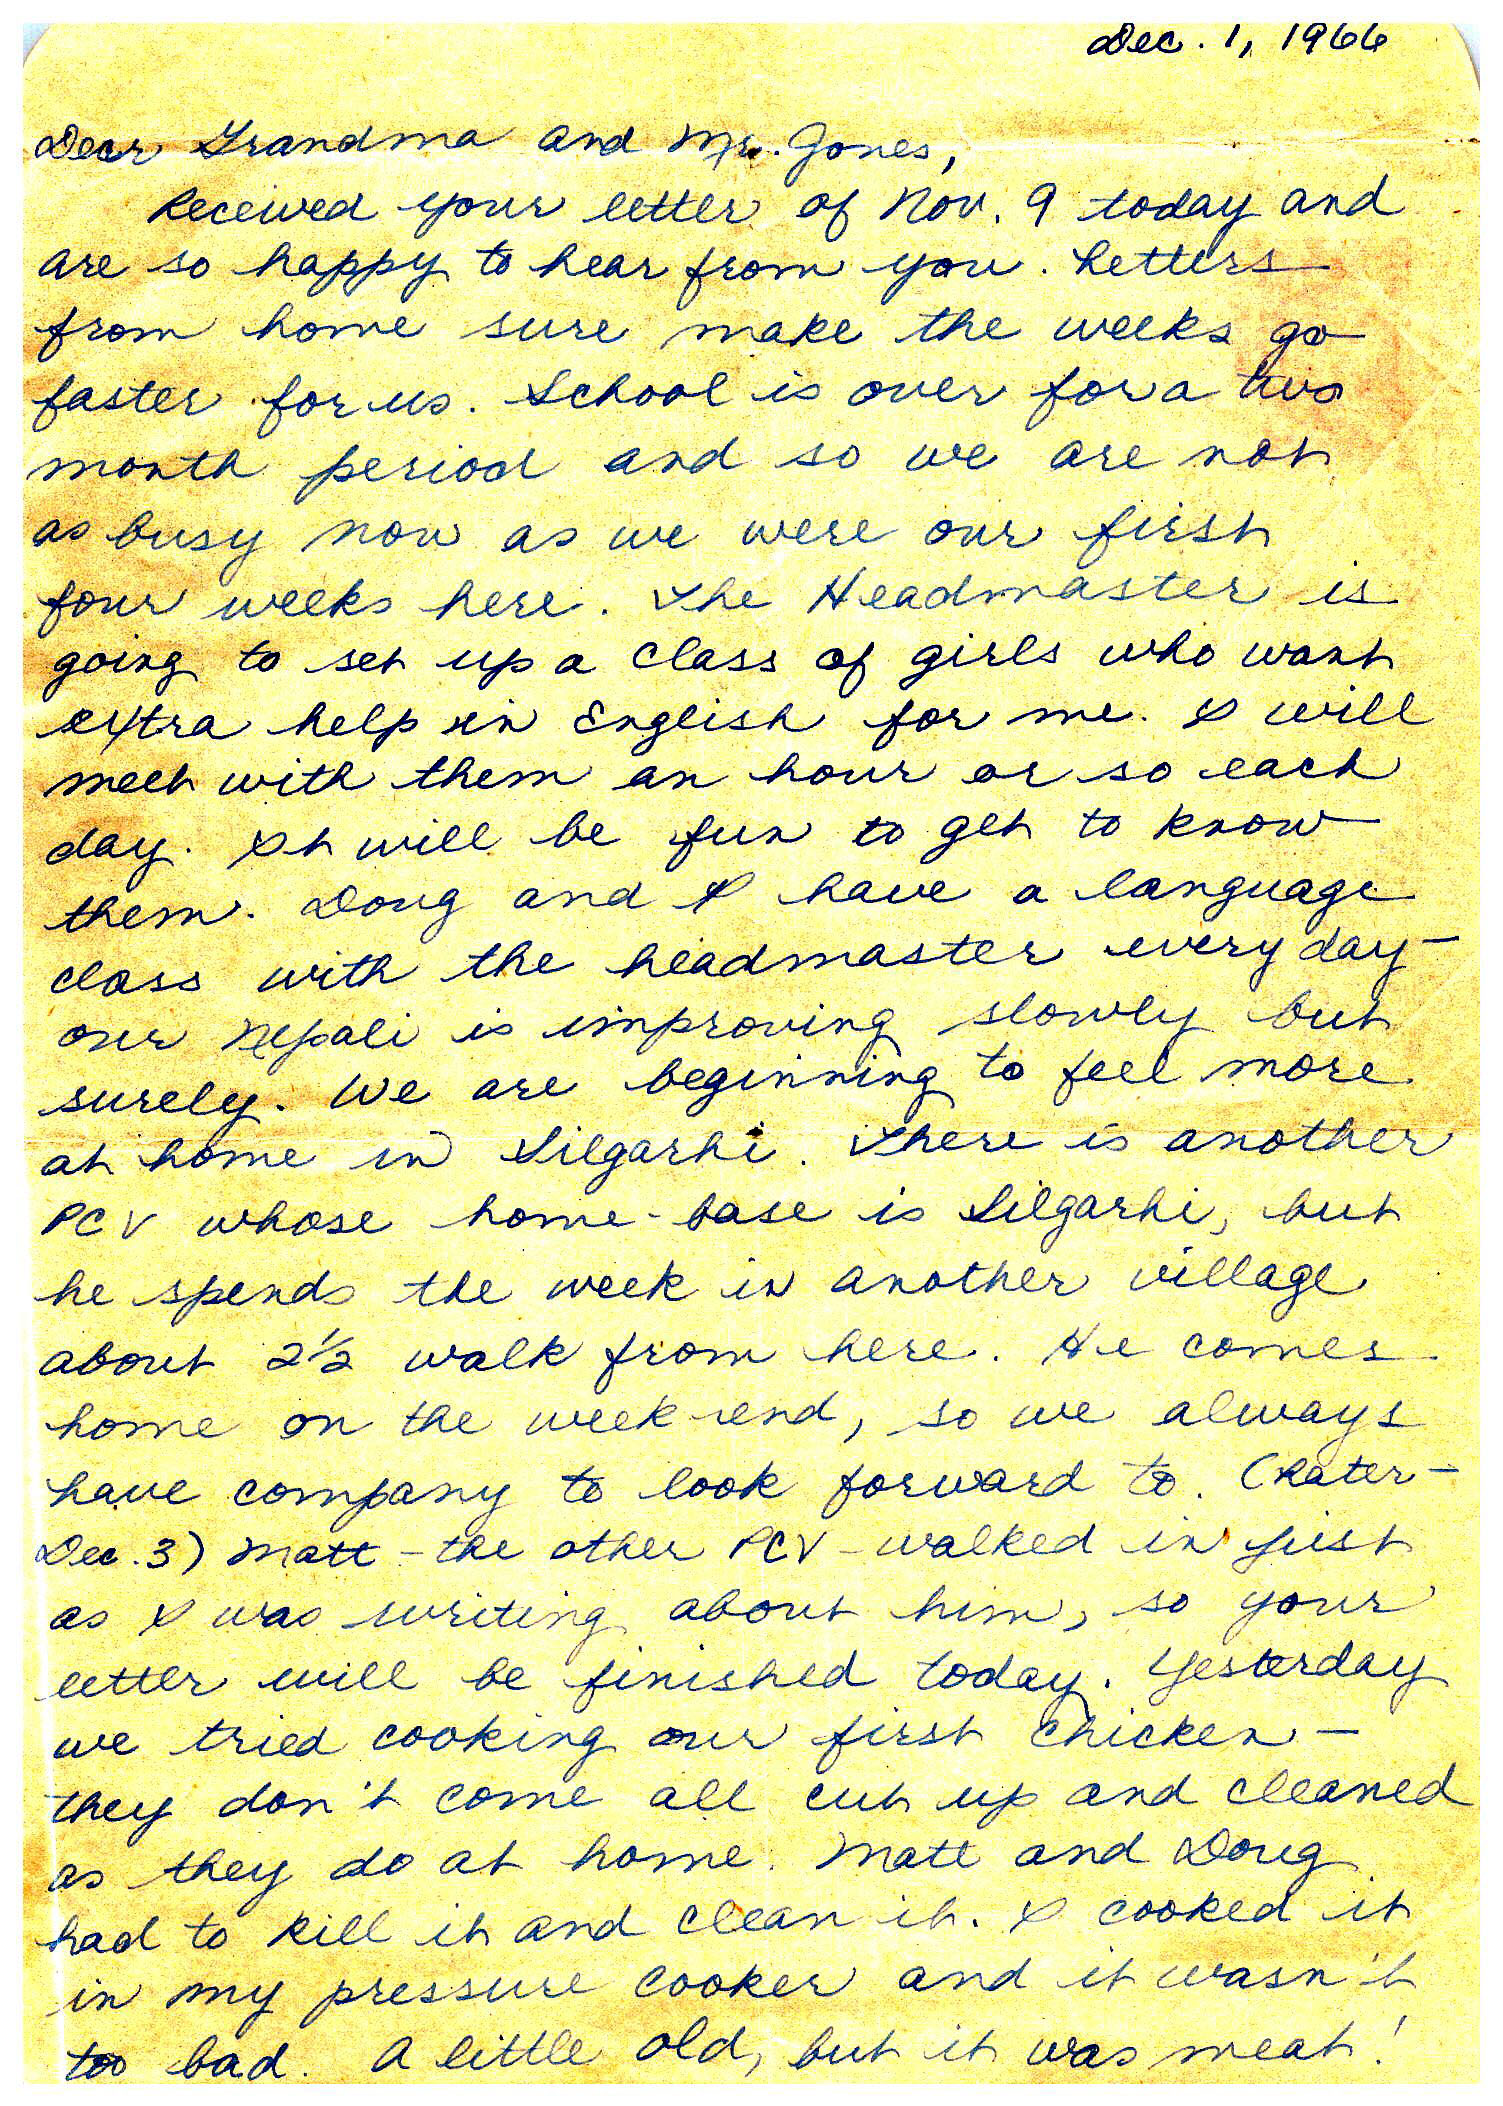 Dec. 1, 1966
Dear Grandma and Mr. Jones,
Received your letter of Nov. 9 today and
are so happy to hear from you. Letters
from home sure make the weeks go
faster for us. School is over for a two
month period and so we are not
as busy now as we were our first
four weeks here. The Headmaster is
going to set up a class of girls who want
extra help in English for me. I will
meet with them an hour or so each
day. It will be fun to get to know
them. Doug and I have a language
class with the headmaster every day—
our Nepali is improving slowly but
surely. We are beginning to feel more
at home in Silgarhi. There is another
PCV whose home-base is Silgarhi, but
he spends the week in another village
about 2½ walk from here. He comes
home on the week-end, so we always
have company to look forward to. (Later—
Dec. 3) Matt - the other PCV - walked in just
as I was writing about him, so your
letter will be finished today. Yesterday
we tried cooking our first chicken—
they don't come all cut up and cleaned
as they do at home. Matt and Doug
had to kill it and clean it. I cooked it
in my pressure cooker and it wasn't
too bad. A little old, but it was meat!